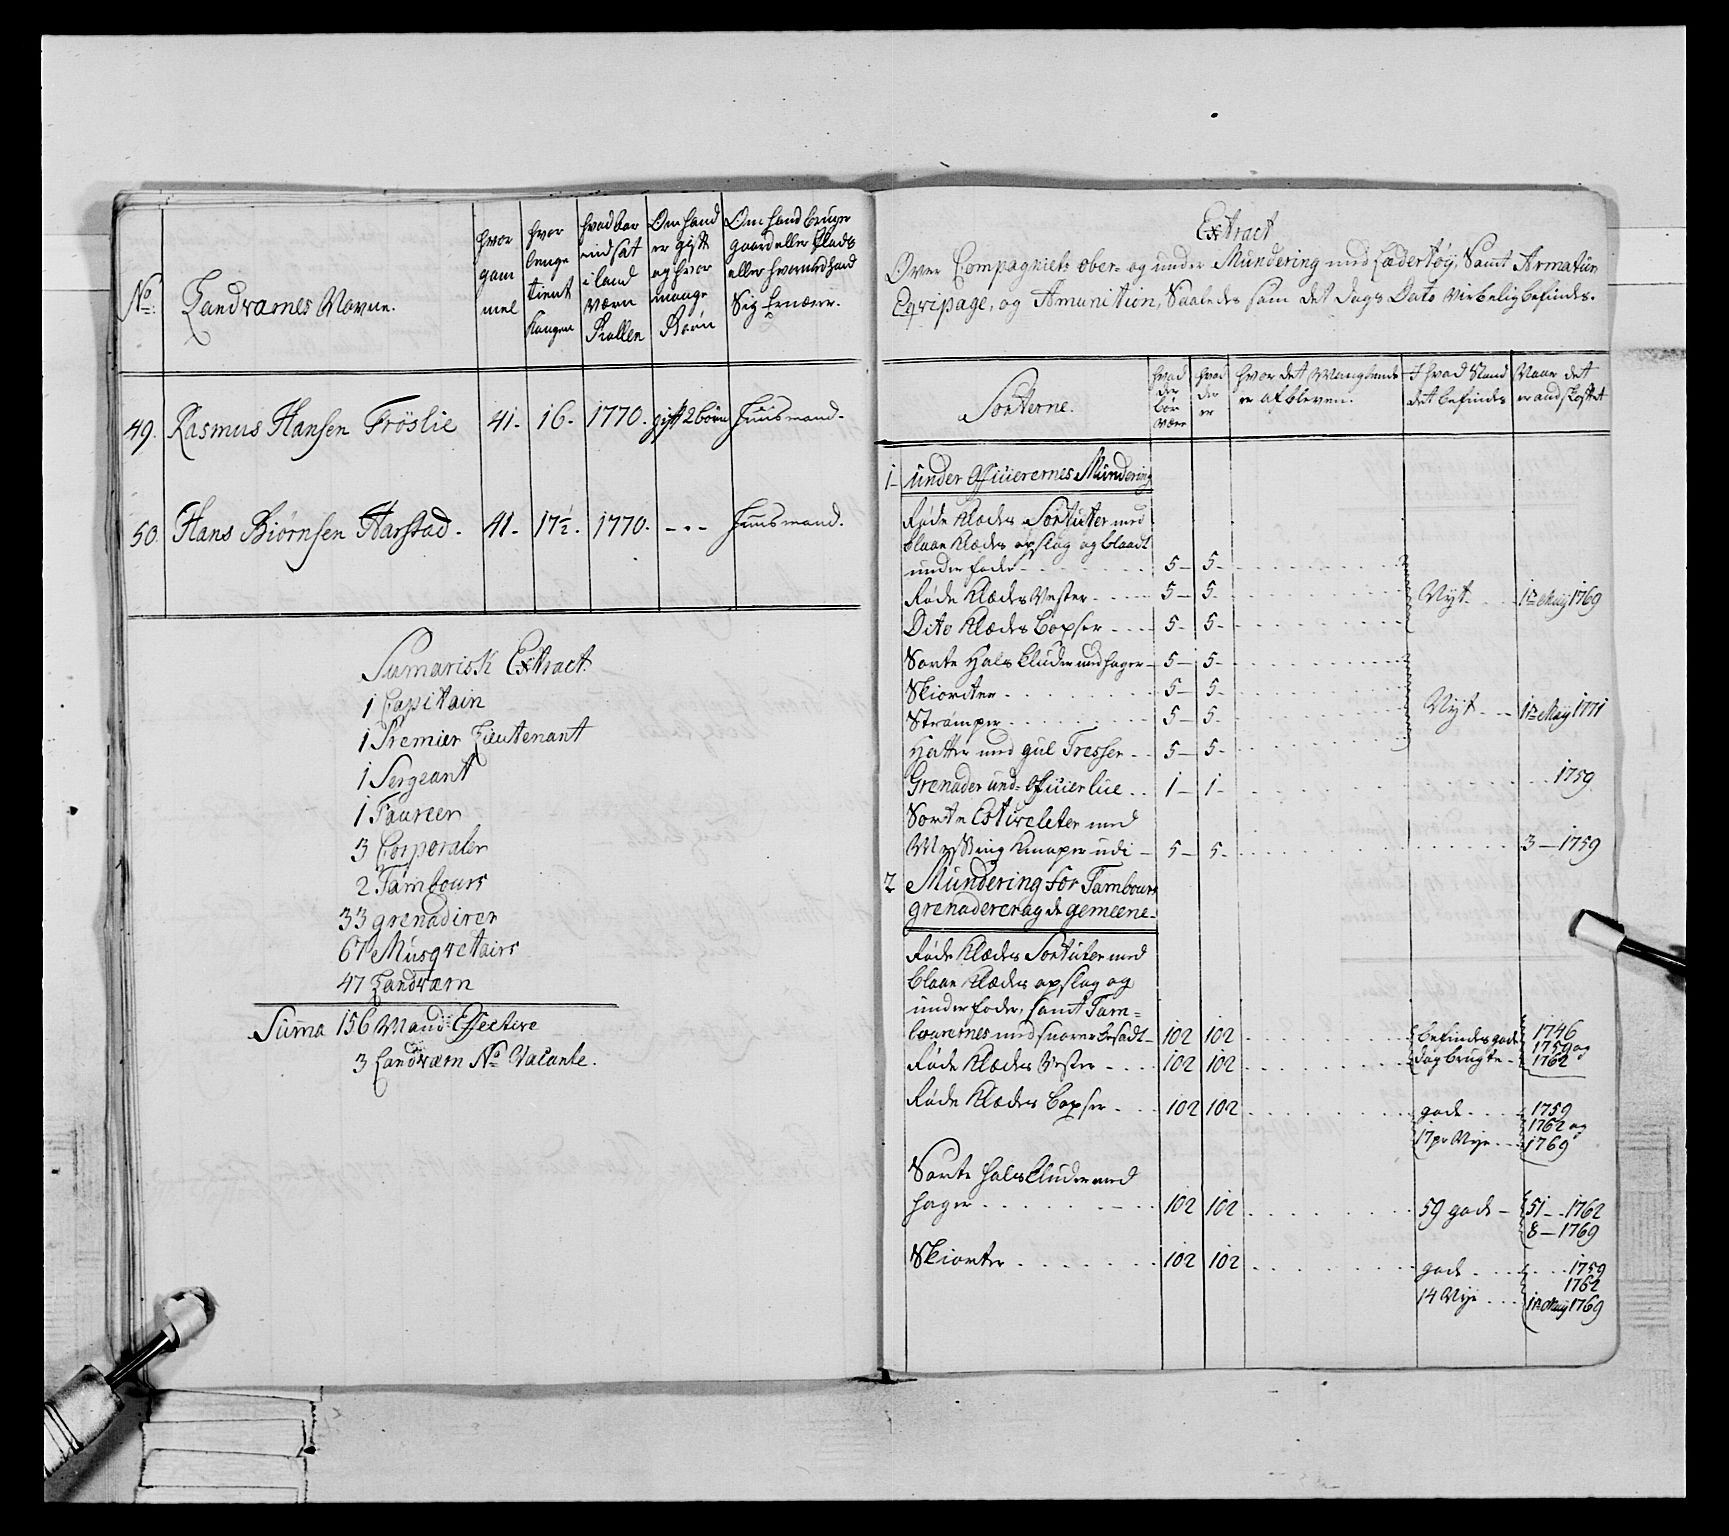 No. Landværnes Navne. hvor gam mel hvor lenge tient Kongen hvad har ind sat i land værn Rollen Om hand er gift og hvor mange Børn Om hand bruger gaard eller Plads eller hvormed hand Sig Ernærer.
49. Rasmus Hansen Fröslie 41. 16. 1770. gift 2 börn Huusmand.
50. Hans Biørnsen Harstad. 41. 17½. 1770. - - - Huusmand.
Sumarisk Extract
1 Capitain
1 Premier Lieutenant
1 Sergeant
1 Foureer
3 Corporaler
2 Tambours
33 grenadirer
67 Musqvetairs
47 Landværn
Suma 156 Mand Effective
3 Landværn No Vacante.
Extract
Over Compagniets ober- og under Mundering med Lædertøy, Samt Armatür
Eqvipage, og Amunition, Saaledes som det Dags Dato Virkelig befindes.
Sorterne. hvad der bör være hvad der er hvor det Manglende er afbleven. I hvad Stand det befindes Naar det er andskaffet
1 under Officerernes Mundering
Røde Klædes Sortuter med
blaae Klædes opslag og blaadt
under foder 5 5
Røde Klædes Vester 5 5 Nÿt 1te Maÿ 1769
Dito Klædes boxser 5 5
Sorte Hals Kluder med hager 5 5
Skiorter 5 5
Strømper 5 5 Nÿt 1te Maÿ 1771
Hatter med gul Tresser 5 5
Grenader und: Officer hue 1 1 1759
Sorte Estiveleter med
Messing Knaper udi 5 5 3 - 1759
2 Mundering for Tambours
grenaderer og de gemeene
Røde Klædes Sortuter med
blaae Klædes opslag og
under foder, samt Tam-
bourernes med snorer besadt 102 102 befindes gode 1746
Røde Klædes Vester 102 102 dog brugte 1759 og 1762
Røde Klædes boxser 102 102 gode 1759
1762 og
17 pr Nye 1769
Sorte hals Kluder med
hager 102 102 59 gode 51 - 1762
8 - 1769
Skiorter 102 102 gode 1759
1762
14 Nye 1te Maÿ 1769